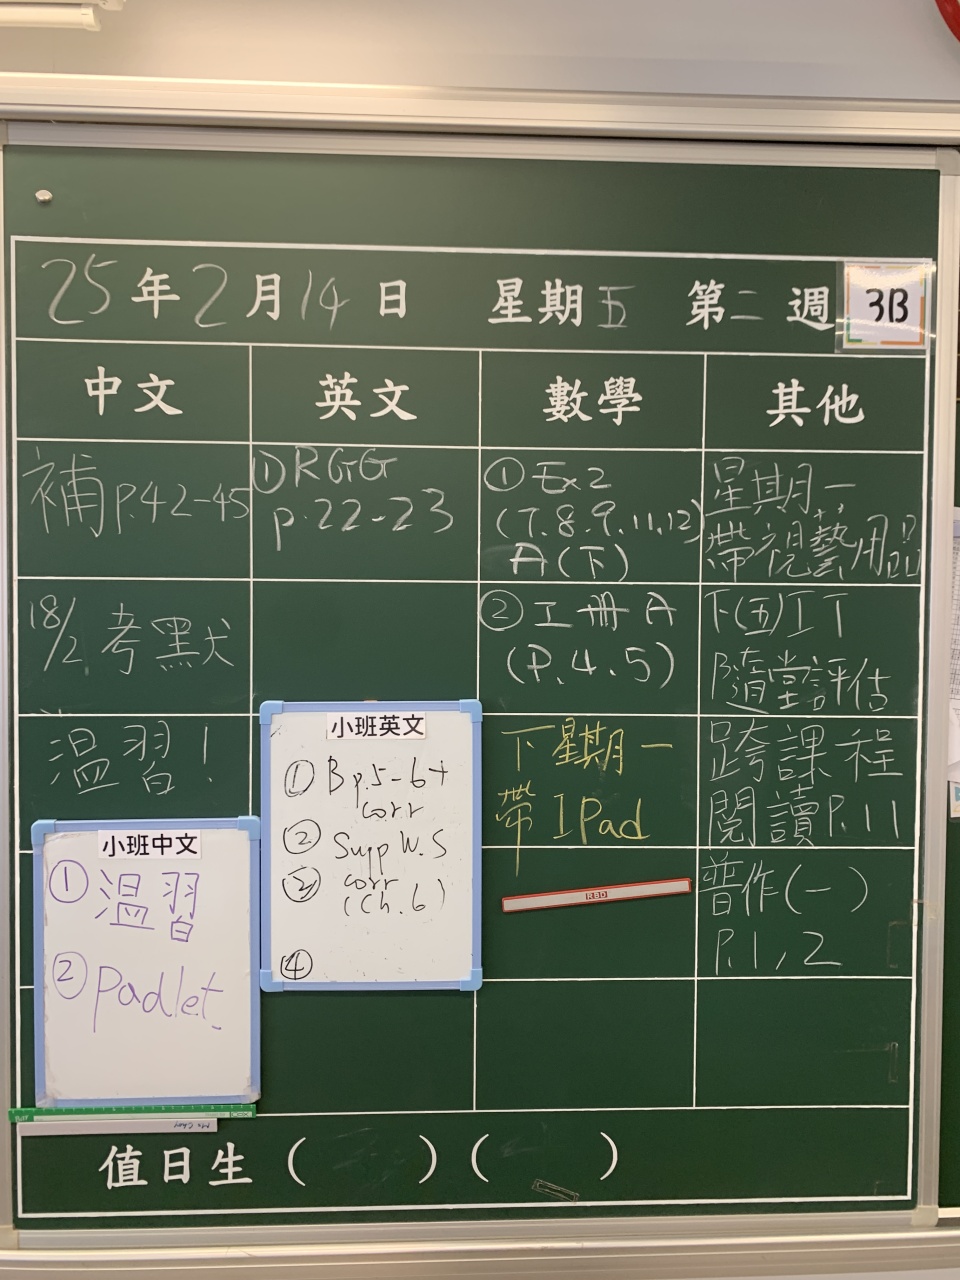 25年2月14日 星期五 第二週 3B
中文
英文
數學
其他
補p.42-45
18/2 考默
溫習!
小班中文
① 溫習
② Padlet
① RGG
p.22-23
小班英文
① B p.5-6+
corr
② Supp W.S
③ corr
(Ch.6)
④
① Ex2
(7.8.9.11.12)
A(下)
② 工冊A
(P.4.5)
下星期一
帶IPad
RBD
星期一
帶視藝用品
下(五)IT
隨堂評估
跨課程
閱讀P.11
普作(一)
P.1,2
值日生( )( )